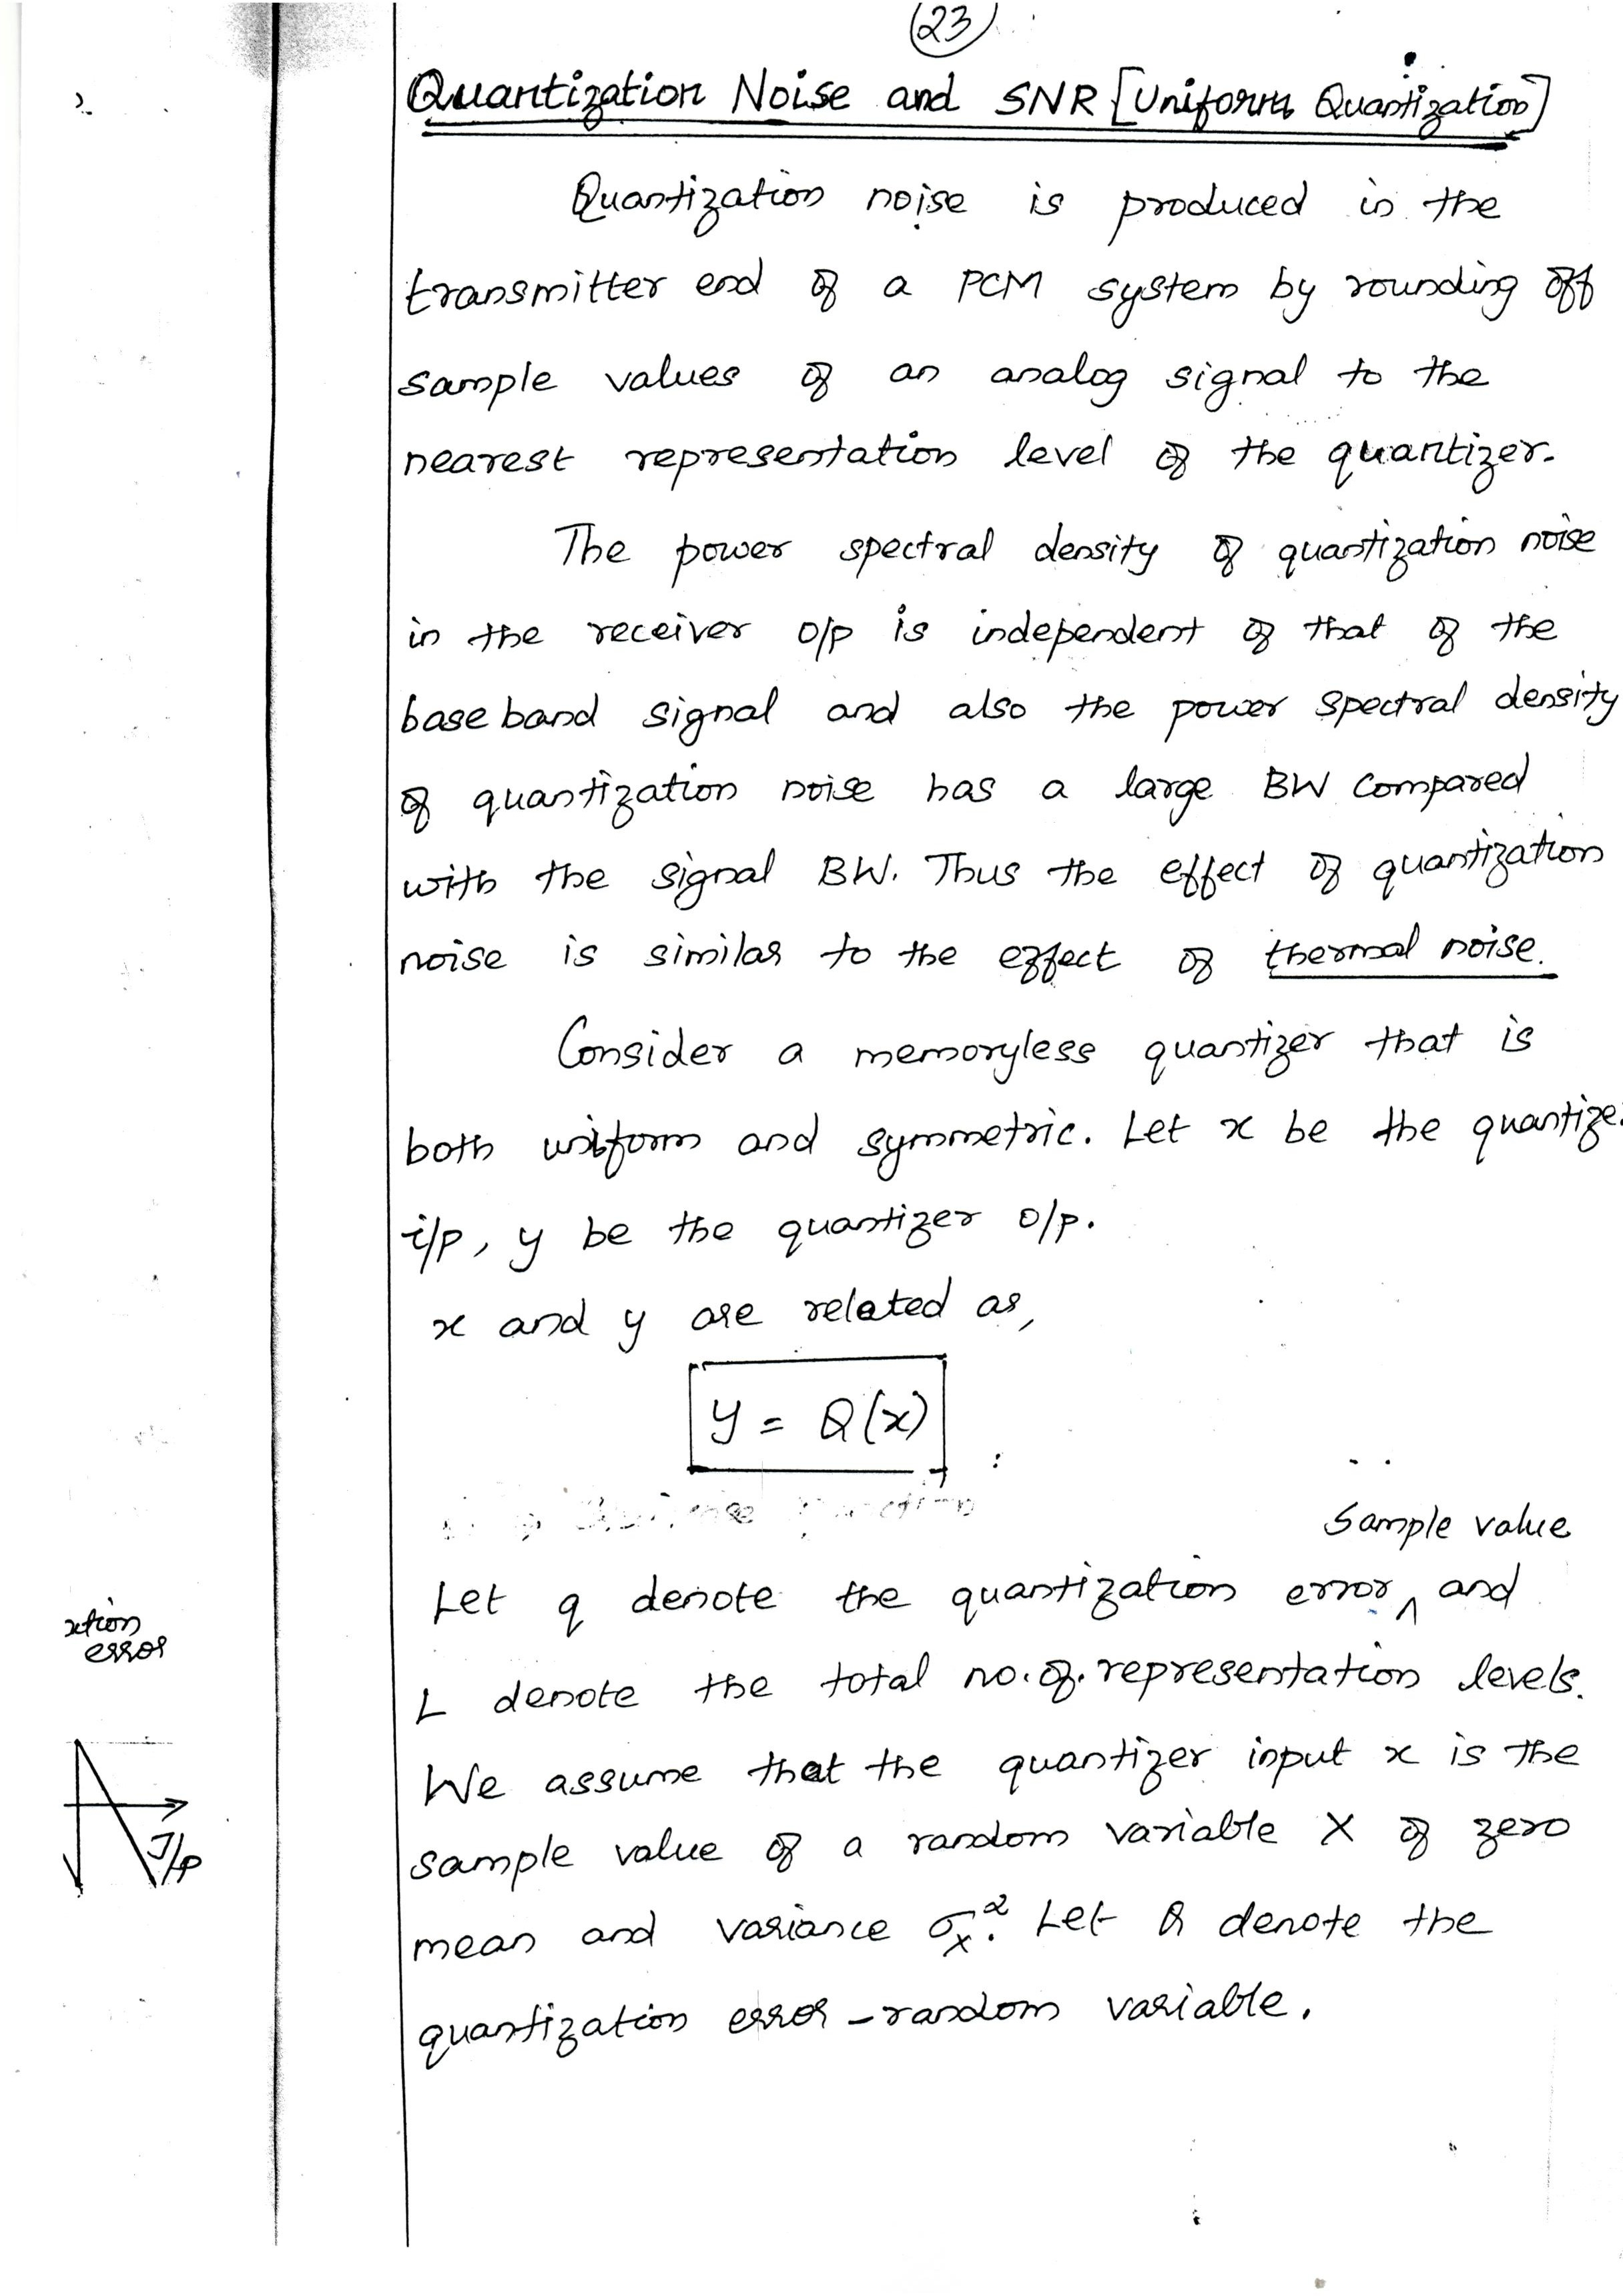 23
Quantization Noise and SNR [Uniform Quantization]
Quantization noise is produced in the
transmitter end of a PCM system by rounding off
sample values of an analog signal to the
nearest representation level of the quantizer.
The power spectral density of quantization noise
in the receiver o/p is independent of that of the
base band signal and also the power spectral density
of quantization noise has a large BW compared
with the signal BW. Thus the effect of quantization
noise is similar to the effect of thermal noise.
Consider a memoryless quantizer that is
both uniform and symmetric. Let x be the quantize
i/p, y be the quantizer o/p.
x and y are related as,
y = Q(x)
Sample value
Let q denote the quantization error ^ and
L denote the total no. of. representation levels.
We assume that the quantizer input x is the
sample value of a random variable X of zero
mean and variance σx². Let Q denote the
quantization error - random variable.
ation
error
I/p